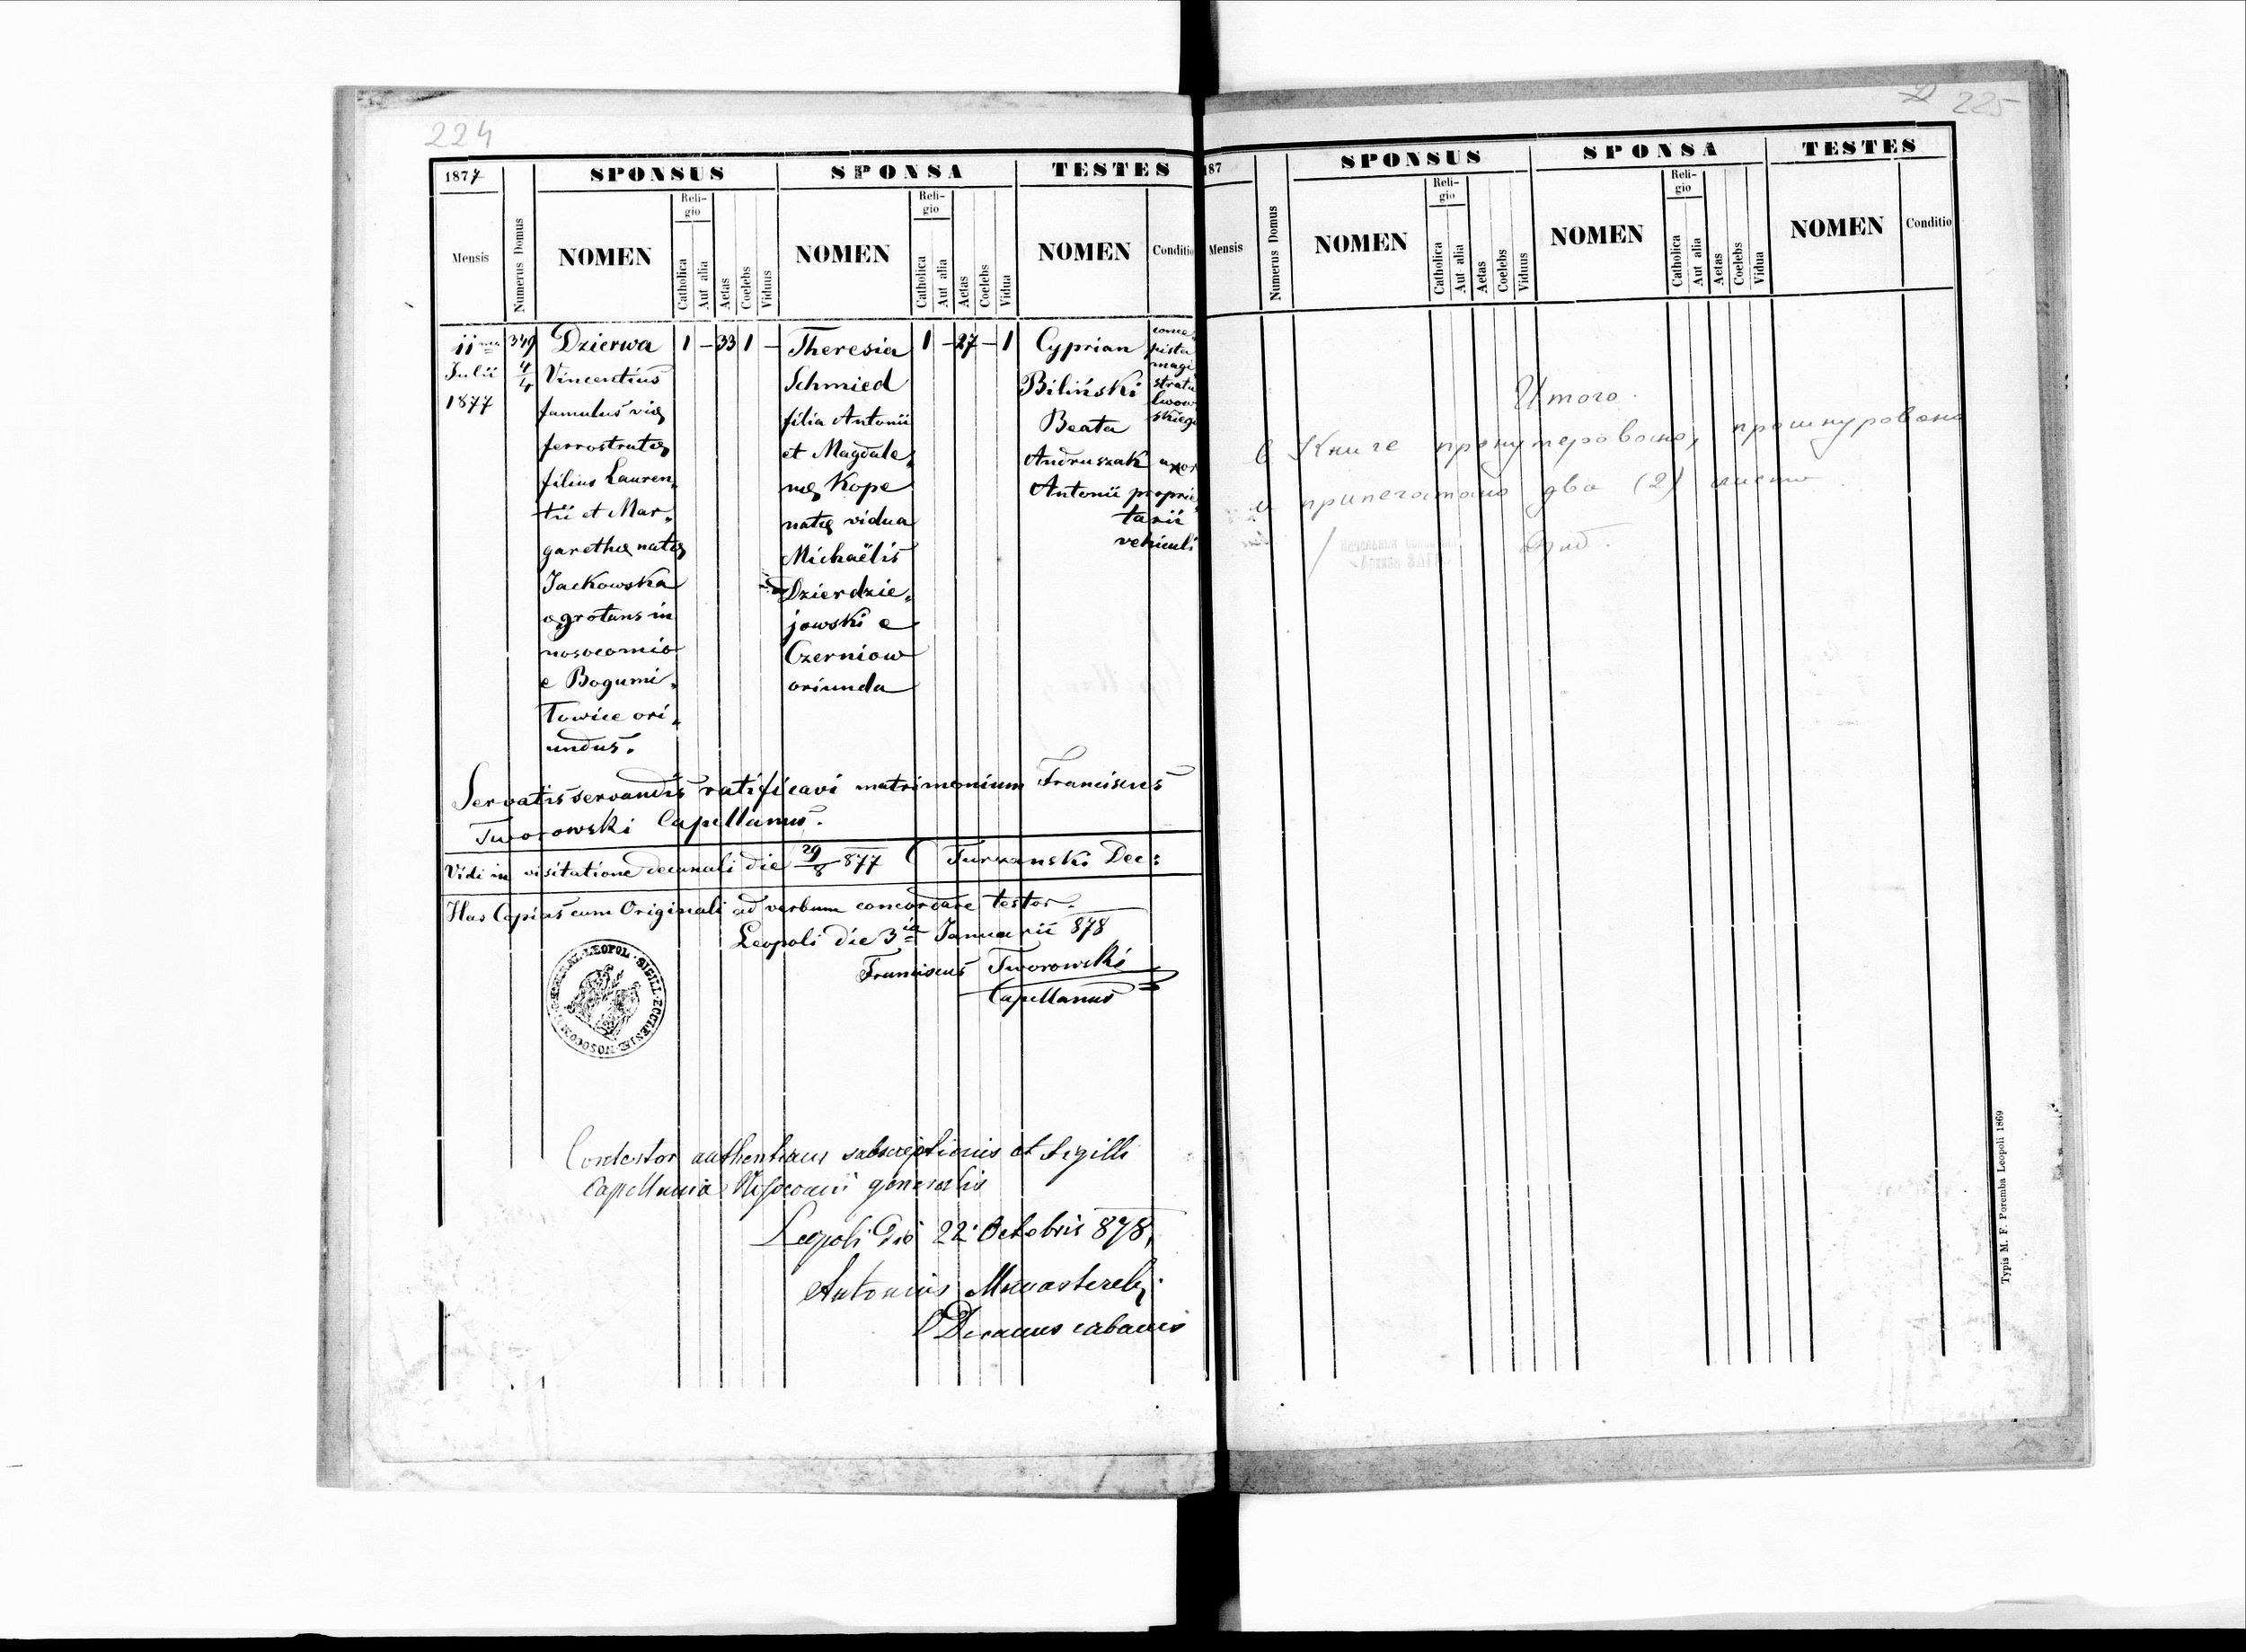 224
1877
SPONSUS
SPONSA
TESTES
Mensis
Numerus Domus
NOMEN
Reli-
gio
Catholica
Aut alia
Aetas
Coelebs
Viduus
NOMEN
Reli-
gio
Catholica
Aut alia
Aetas
Coelebs
Vidua
NOMEN
Conditio
11
Julii
1877
349
4/4
Dzierwa
Vincentius
famulus viæ
ferrostratæ
filius Lauren„
tii et Mar„
garethæ natæ
Jackowska
ægrotans in
nosocomio
e Bogumi„
łowice ori„
undus.
1 – 33 1 –
Theresia
Schmied
filia Antonii
et Magdale„
næ Kope
natæ vidua
Michaëlis
Dzierdzie„
jowski e
Czerniow
oriunda
1 – 27 – 1
Cyprian
Biliński
conce„
pista
magi
stratu
lwow
skiego
Beata
Andruszak uxor
Antonii proprie„
tarii
vehiculi
Servatis servandis ratificavi matrimonium Franciscus
Tworowski Capellanus.
Vidi in visitatione decanali die 29/8 877 Turzanski Dec:
Has Copias cum Originali ad verbum concordare testor.
Leopoli die 3ia Januarii 878
Franciscus Tworowski
Capellanus
SIGILL·ECCLESIÆ·NOSOCOMII·GENERAL·LEOPOL·
Contestor authenticam subscriptionis et Sigilli
Capellaniæ Nosocomii generalis
Leopoli die 22 Octobris 878,
Antonius
Decanus
225
187
SPONSUS
SPONSA
TESTES
Mensis
Numerus Domus
NOMEN
Reli-
gio
Catholica
Aut alia
Aetas
Coelebs
Viduus
NOMEN
Reli-
gio
Catholica
Aut alia
Aetas
Coelebs
Vidua
NOMEN
Conditio
Итого.
В Книге пронумеровано, прошнуровано
и припечатано два (2) листа.
Typis M. F. Poremba Leopoli 1869